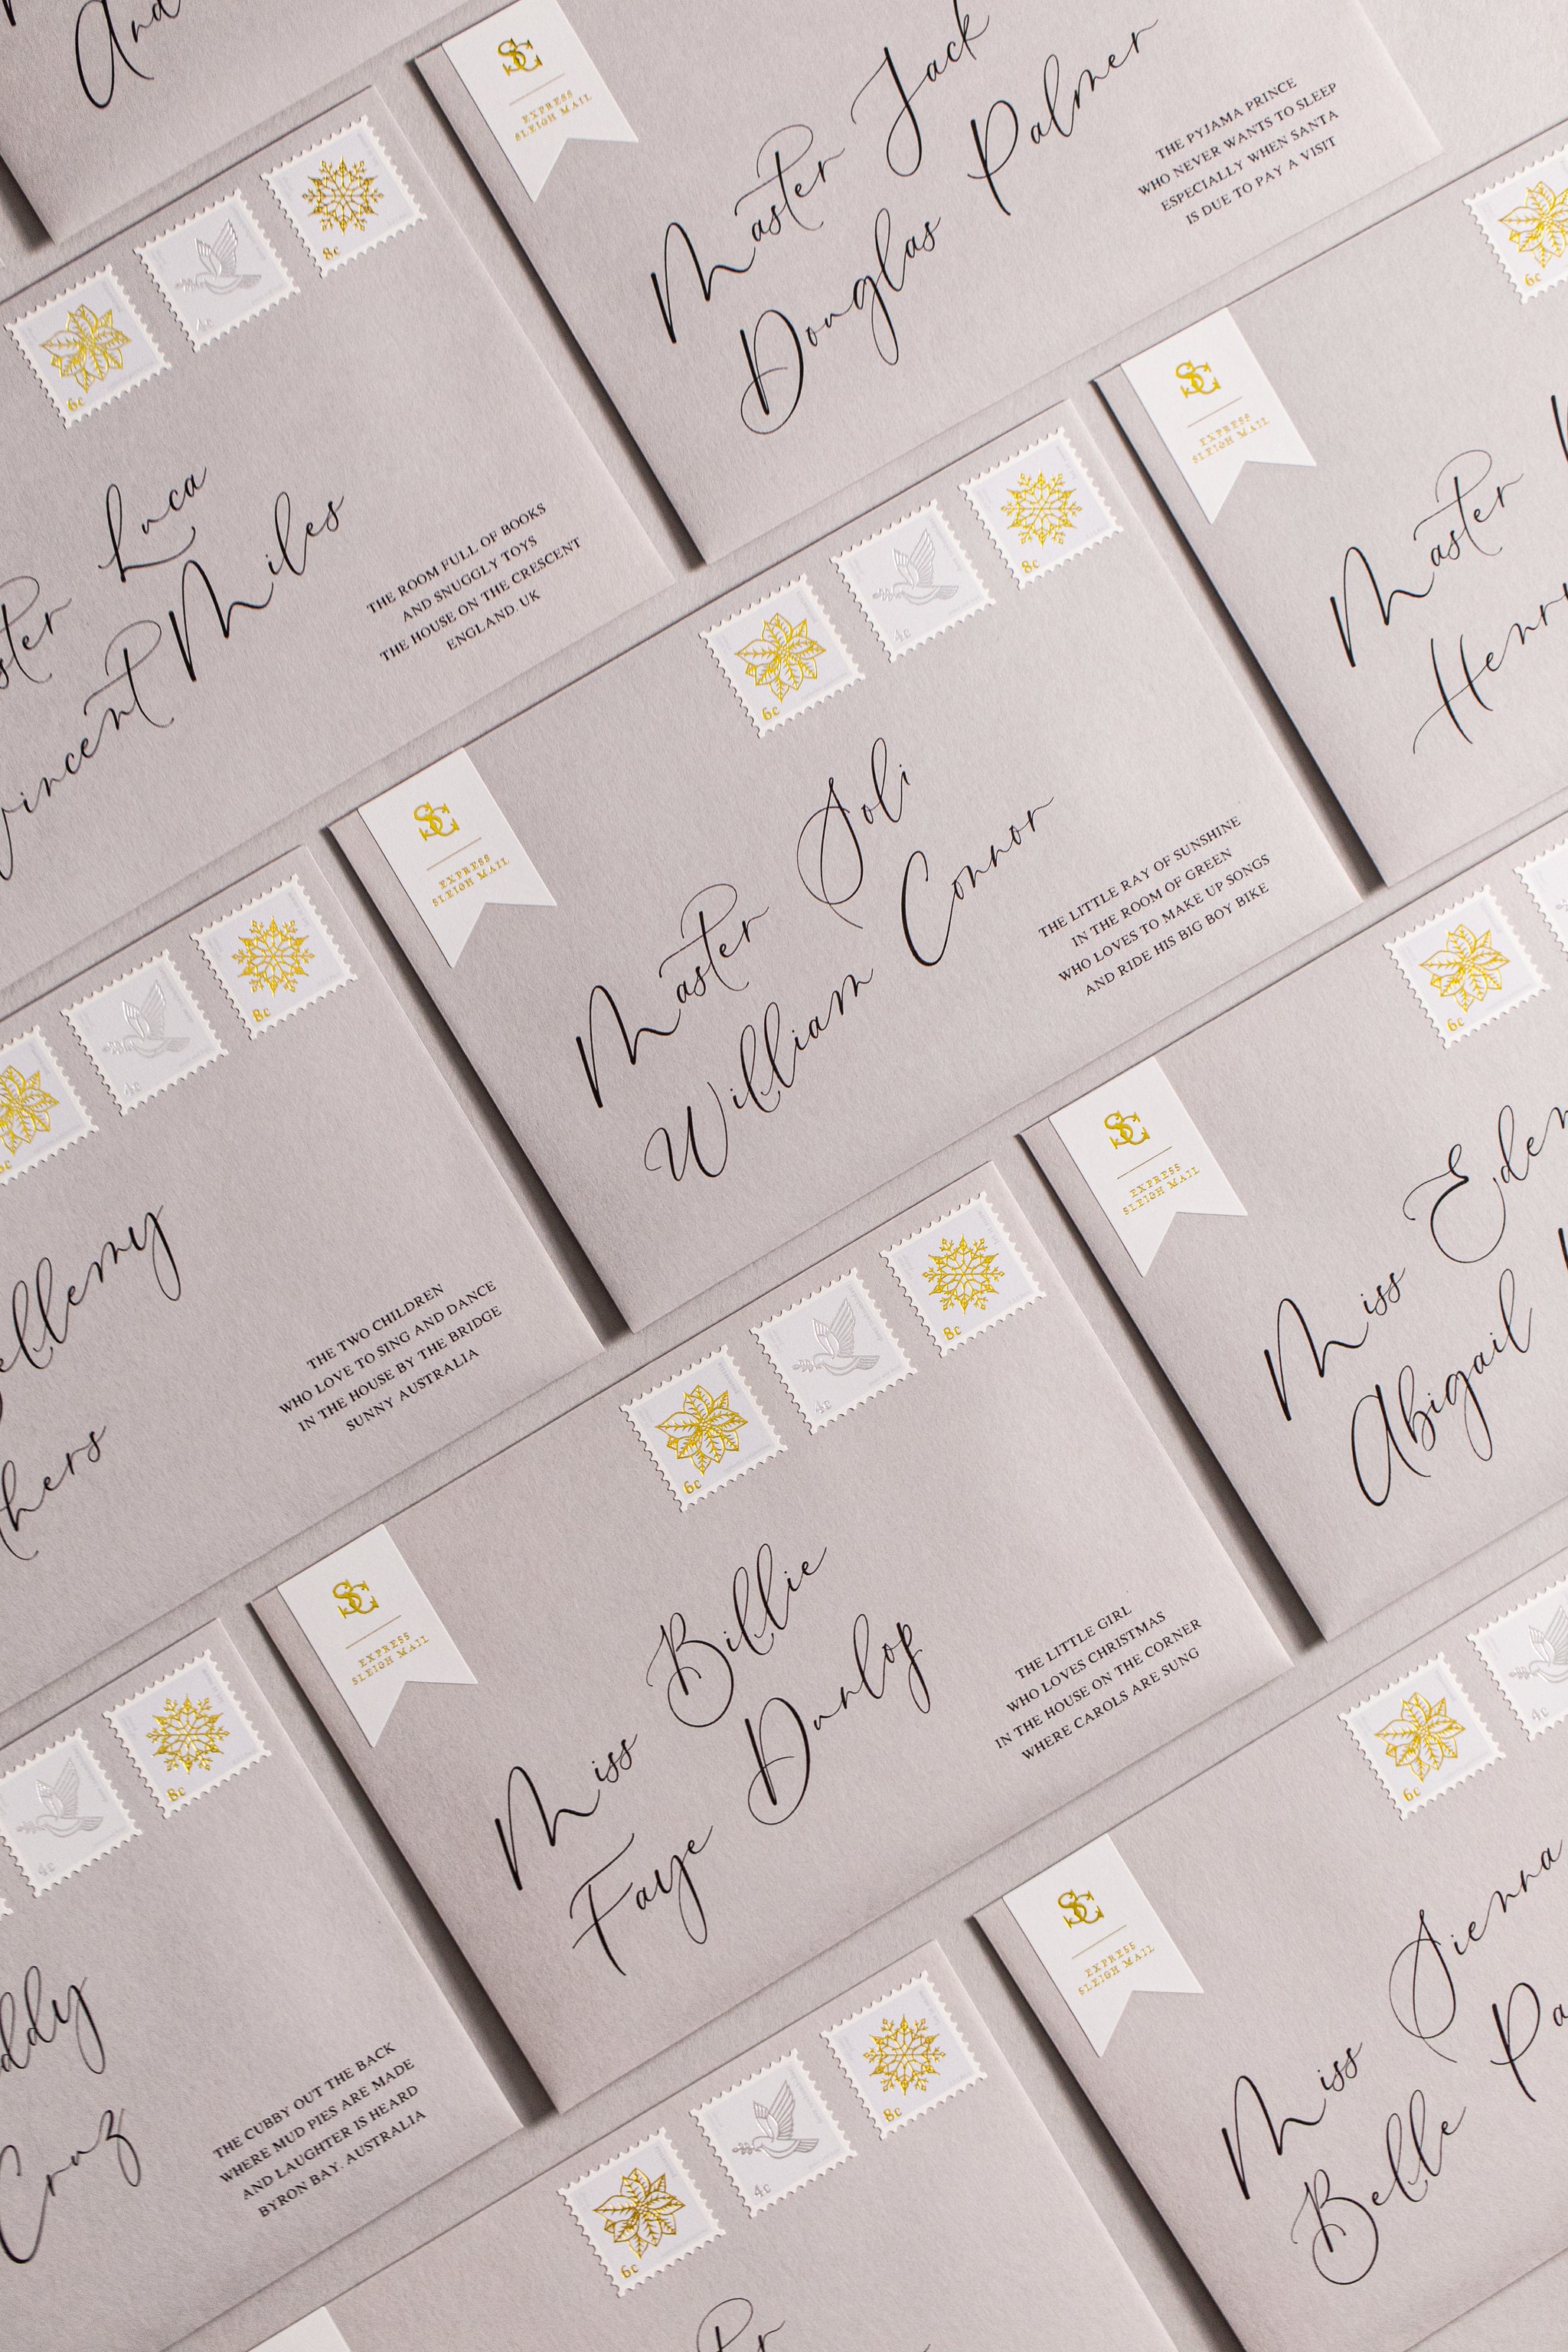 SC
EXPRESS
SLEIGH MAIL
Master Jack
Douglas Palmer
THE PYJAMA PRINCE
WHO NEVER WANTS TO SLEEP
ESPECIALLY WHEN SANTA
IS DUE TO PAY A VISIT
6c
4c
8c
Luca
Vincent Miles
THE ROOM FULL OF BOOKS
AND SNUGGLY TOYS
THE HOUSE ON THE CRESCENT
ENGLAND. UK
6c
SC
EXPRESS
SLEIGH MAIL
Master
6c
4c
8c
SC
EXPRESS
SLEIGH MAIL
Master Soli
William Connor
THE LITTLE RAY OF SUNSHINE
IN THE ROOM OF GREEN
WHO LOVES TO MAKE UP SONGS
AND RIDE HIS BIG BOY BIKE
6c
4c
8c
THE TWO CHILDREN
WHO LOVE TO SING AND DANCE
IN THE HOUSE BY THE BRIDGE
SUNNY AUSTRALIA
6c
SC
EXPRESS
SLEIGH MAIL
Miss Eden
Abigail
6c
4c
8c
SC
EXPRESS
SLEIGH MAIL
Miss Billie
Faye Dunlop
THE LITTLE GIRL
WHO LOVES CHRISTMAS
IN THE HOUSE ON THE CORNER
WHERE CAROLS ARE SUNG
4c
8c
Cruz
THE CUBBY OUT THE BACK
WHERE MUD PIES ARE MADE
AND LAUGHTER IS HEARD
BYRON BAY. AUSTRALIA
6c
4c
SC
EXPRESS
SLEIGH MAIL
Miss Sienna
Belle
6c
4c
8c